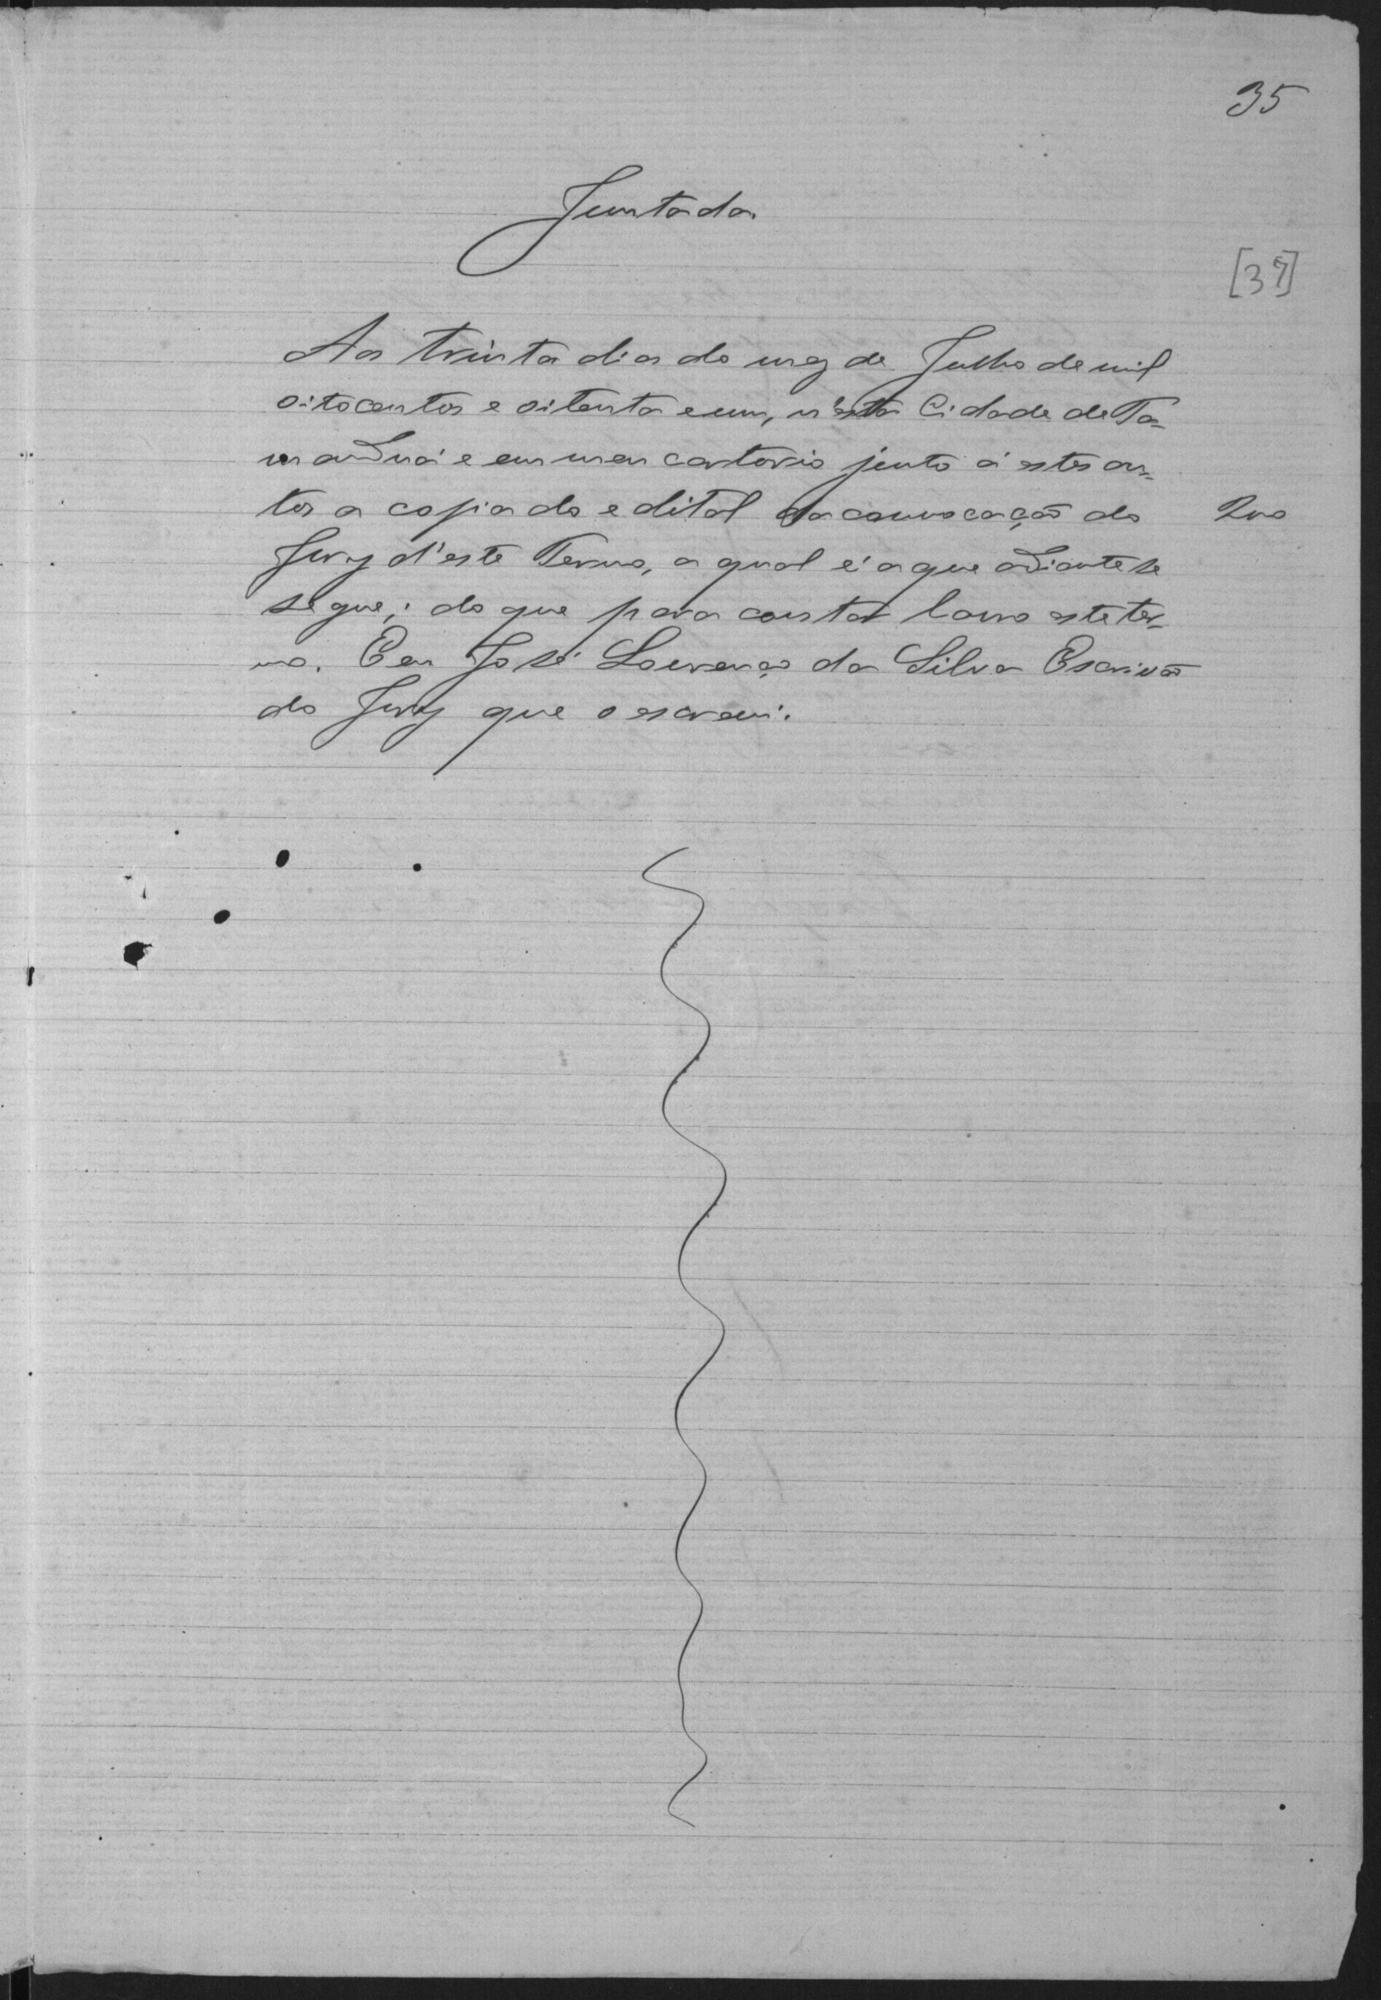 35
Juntada
[37]
Aos trinta dias do mez de Julho de mil
oitocentos e oitenta e um, n'esta Cidade de Ta-
manduá e em meu cartorio junto á estes au-
tos a copia do edital da convocação do
Jury d'este Termo, a qual é a que adiante se
segue; do que para constar lavro este ter-
mo. Eu José Lourenço da Silva Escrivão
do Jury que o escrevi.